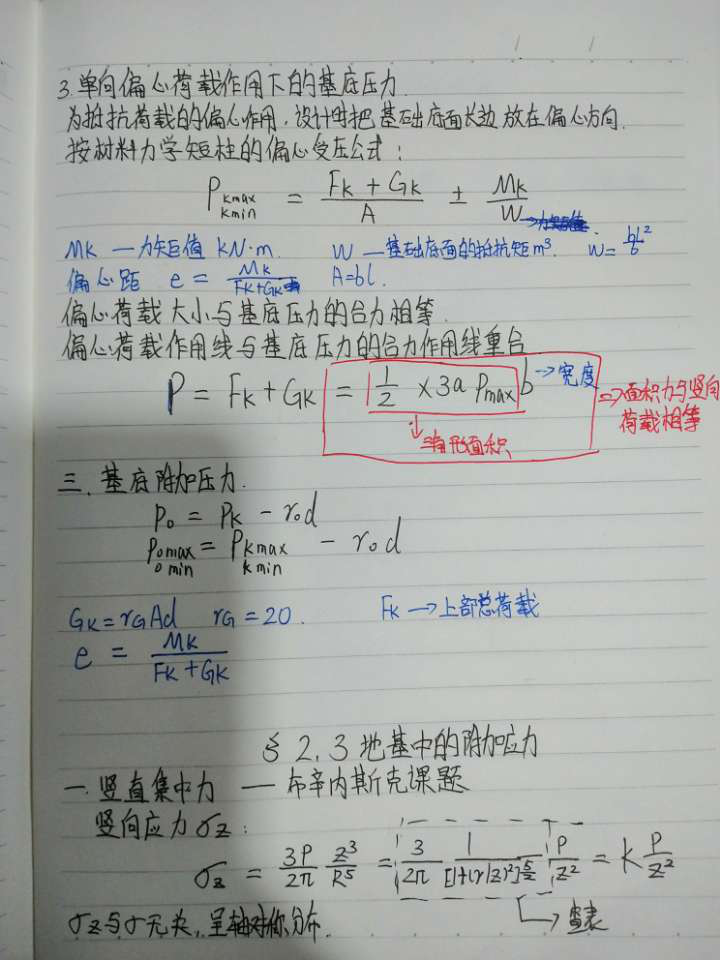 3.单向偏心荷载作用下的基底压力.
为抵抗荷载的偏心作用,设计时把基础底面长边放在偏心方向.
按材料力学短柱的偏心受压公式:
P kmax kmin = (FK + GK)/A ± MK/W
MK — 力矩值 kN·m. W — 基础底面的抵抗矩 m³. W = bl²/6
偏心距 e = MK/(FK+GK) A=bl.
偏心荷载大小与基底压力的合力相等.
偏心荷载作用线与基底压力的合力作用线重合
P = FK + GK = 1/2 × 3a Pmax b → 宽度
⇒ 面积力与竖向荷载相等
↓ 三角形面积
三.基底附加压力.
P0 = PK - r0d
P0max 0min = Pkmax kmin - r0d
GK = rGAd rG = 20. FK → 上部总荷载
e = MK/(FK + GK)
§2.3 地基中的附加应力
一.竖直集中力 — 布辛内斯克课题
竖向应力σz:
σz = 3P/2π z³/R⁵ = 3/2π 1/[1+(r/z)²]^5/2 P/z² = K P/z²
→ 查表
σz与σ无关,呈轴对称分布.